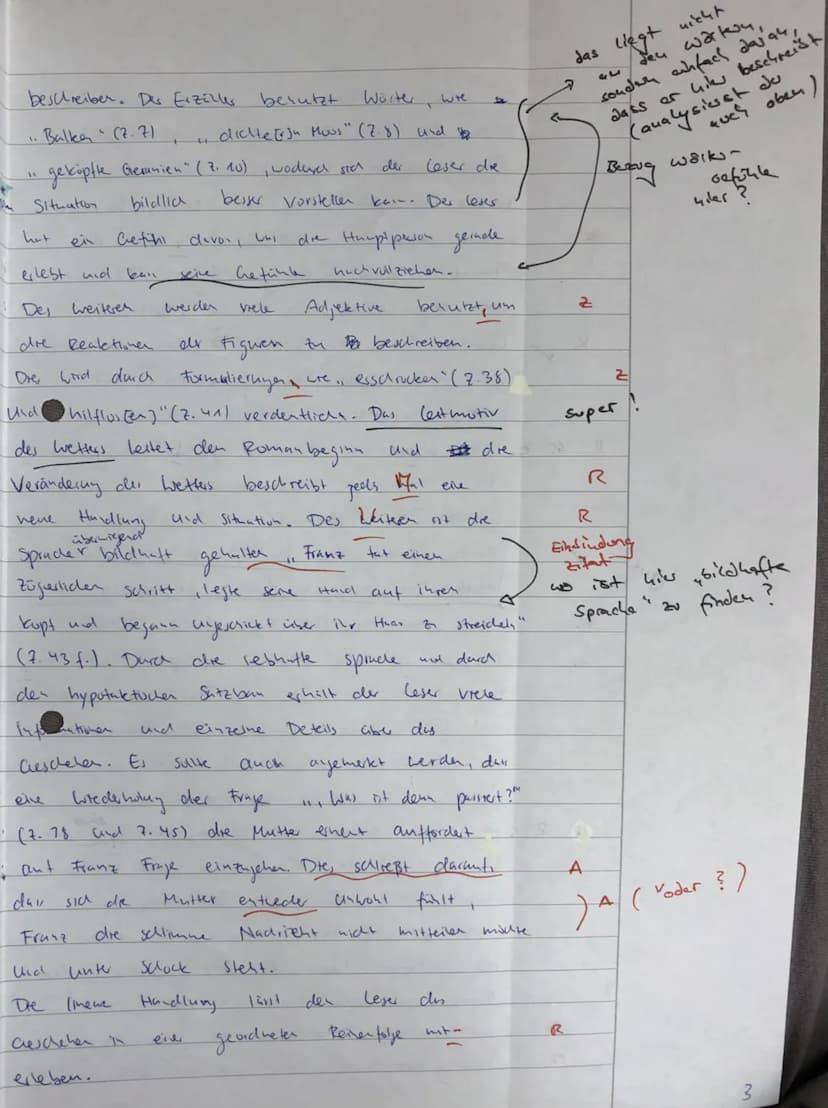 beschreiben. Der Erzähler benutzt Wörter, wie
„Balken" (Z.7), „dichte[s]n Moos" (Z.8) und
„geköpfte Geranien" (Z.10), wodurch sich der Leser die
Situation bildlich besser vorstellen kann. Der Leser
hat ein Gefühl davon, was die Hauptperson gerade
erlebt und kann seine Gefühle nachvollziehen.
Des weiteren werden viele Adjektive benutzt, um
die Reaktionen der Figuren zu beschreiben.
Die wird durch Formulierungen, wie „ erschrocken" (Z.38)
und hilflos[en]" (Z.41) verdeutlicht. Das Leitmotiv
des Wetters leitet den Romanbeginn und die
Veränderung des Wetters beschreibt jedes Mal eine
neue Handlung und Situation. Des Weiteren ist die
Sprache überwiegend bildhaft gehalten „ Franz tat einen
zögerlichen Schritt, legte seine Hand auf ihren
Kopf und begann ungeschickt über ihr Haar zu streicheln"
(Z.43 f.). Durch die lebhafte Sprache und durch
den hypotaktischen Satzbau erhält der Leser viele
Informationen und einzelne Details über das
Geschehen. Es sollte auch angemerkt werden, dass
eine Wiederholung der Frage „‚ Was ist denn passiert?'"
(Z.38 und Z.45) die Mutter erneut auffordert
auf Franz Frage einzugehen. Dies schließt darauf,
dass sich die Mutter entweder unwohl fühlt,
Franz die schlimme Nachricht nicht mitteilen möchte
und unter Schock steht.
Die lineare Handlung lässt den Leser das
Geschehen in einer geordneten Reihenfolge mit-
erleben.
das liegt nicht
an den Wörtern,
sondern einfach daran,
dass er hier beschreibt
(analysierst du
auch oben)
Bezug Wörter-
Gefühle
hier?
Z
Z
super!
R
R
Einbindung
Zitat
wo ist hier „bildhafte
Sprache" zu finden?
A
A ( oder ? )
R
3